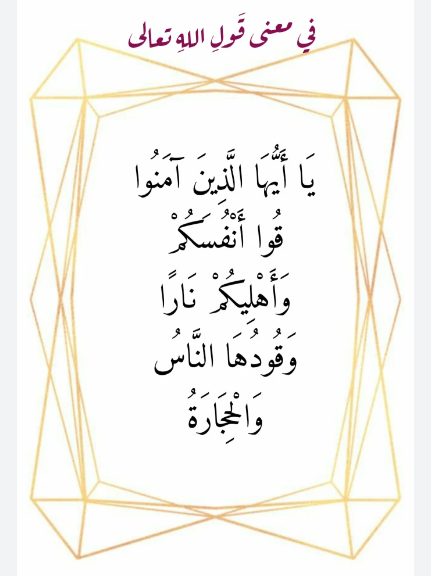 في معنى قَولِ اللهِ تعالى
يَا أَيُّهَا الَّذِينَ آمَنُوا
قُوا أَنْفُسَكُمْ
وَأَهْلِيكُمْ نَارًا
وَقُودُهَا النَّاسُ
وَالْحِجَارَةُ